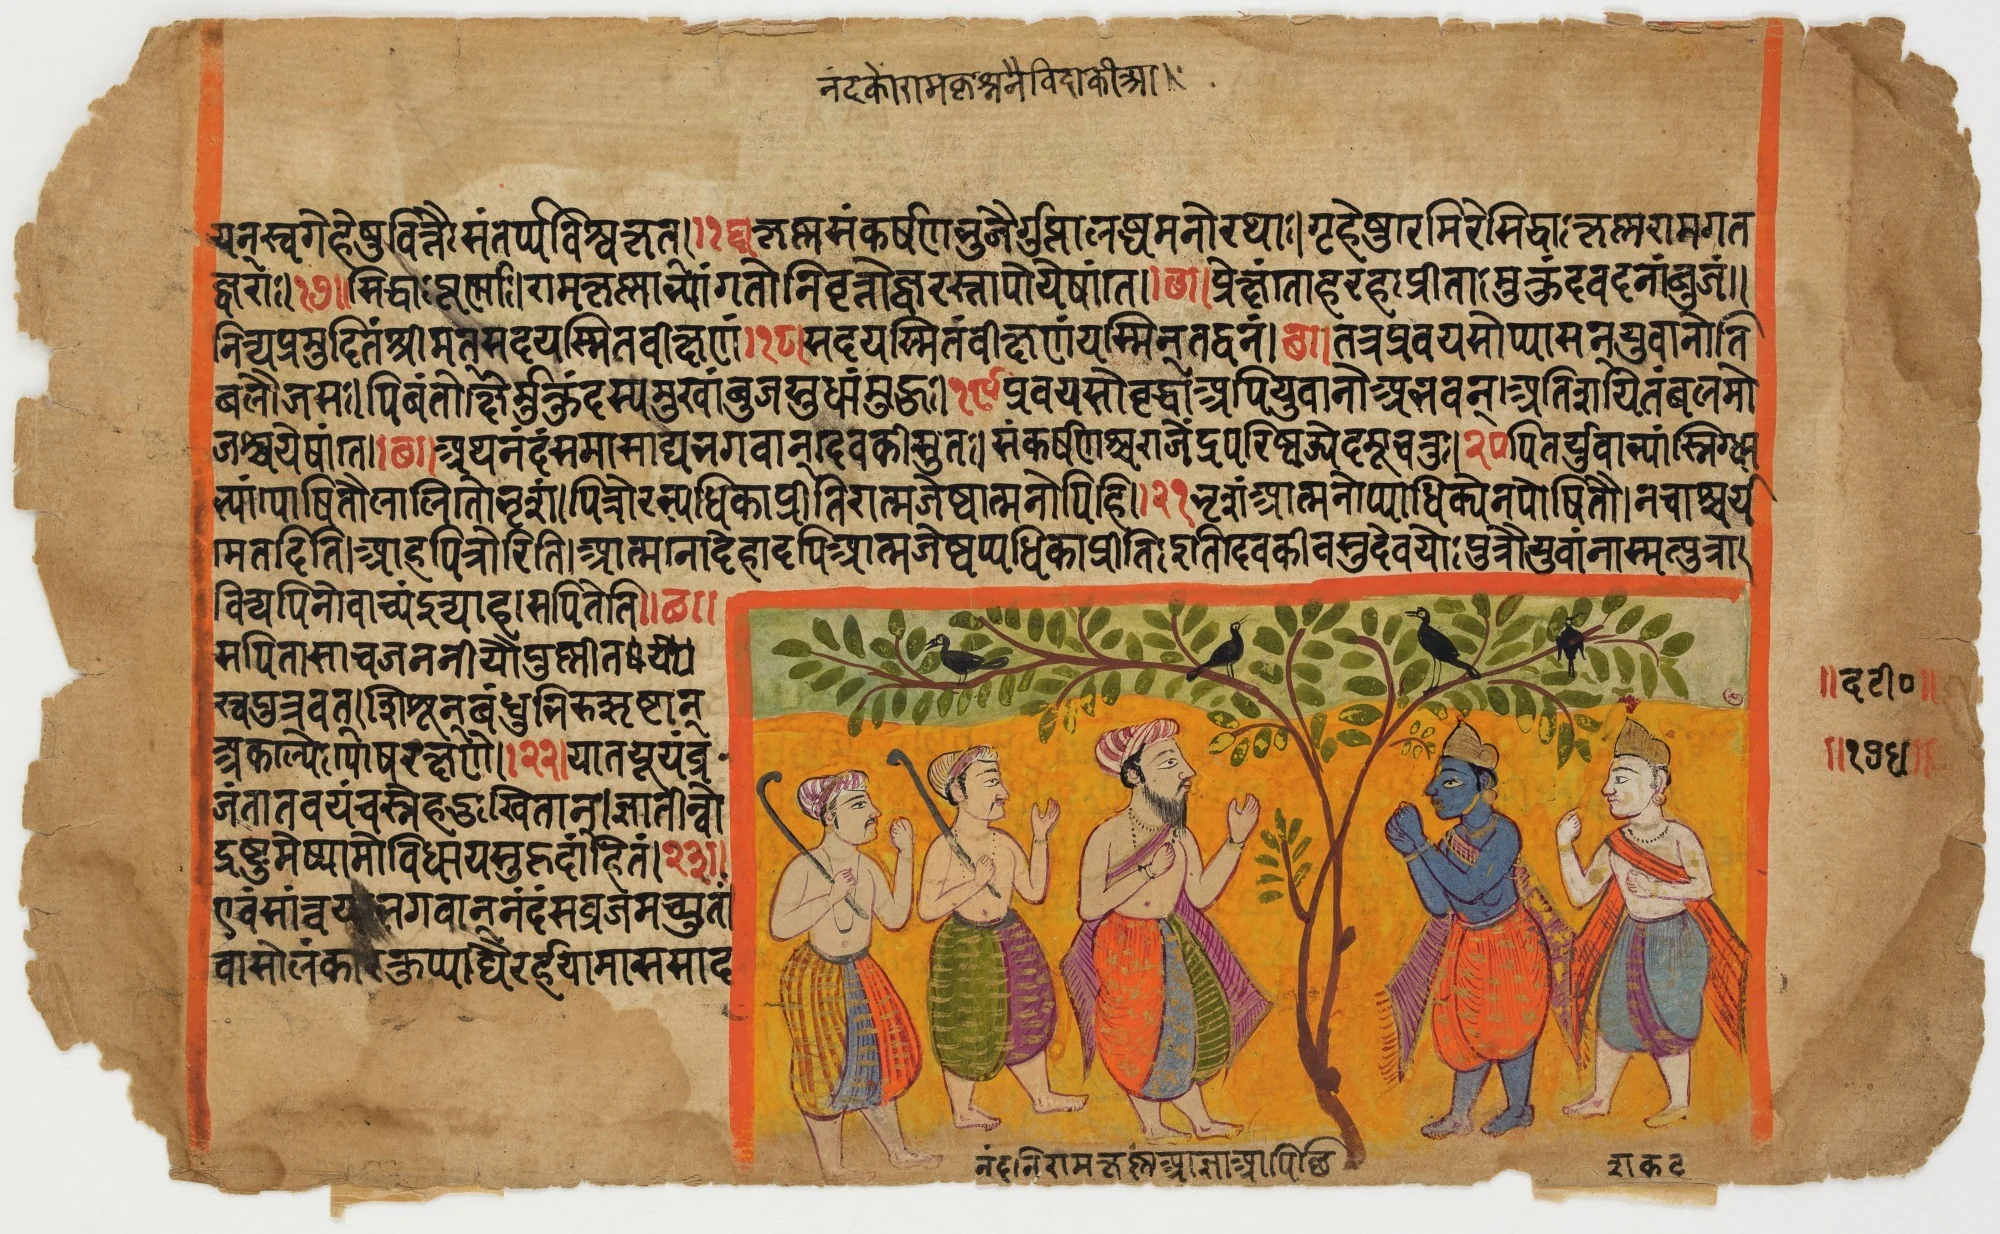 नंदकोरामकृश्ननैविदाकीआ।
यन्स्वगेहेषुवित्तैःसंतर्प्यविश्वकृत्।।१६।।कृष्णसंकर्षणभुजैर्गुप्तालब्धमनोरथाः।गृहेषुरेमिरेसिद्धाःकृष्णरामगत
ज्वराः।१७॥सिद्धाःपूर्णाः।रामकृष्णाभ्यांगतोनिवृत्तोज्वरस्तापोयेषांत।।छ।।प्रेक्षंतोहरहःप्रीतामुकुंदवदनांबुजं॥
नित्यप्रमुदितंश्रीमत्सदयस्मितवीक्षणं।१८।सदयस्मितंवीक्षणंयस्मिन्तद्वनं।छ।।तत्रप्रवयसोप्यासन्युवानोति
बलौजसः।पिबंतोक्षैर्मुकुंदस्यमुखांबुजसुधांमुहुः।१९प्रवयसोवृद्धाअपियुवानोअभवन्।अतिशयितंबलमो
जश्चयेषांत।।छ।।अथनंदंसमासाद्यभगवान्देवकीसुतः।संकर्षणश्चराजेंद्रपरिष्वज्येदमूचतुः।२०पितर्युवाभ्यांस्निग्धा
भ्यांपोषितौलालितौभृशं।पित्रोरभ्यधिकाप्रीतिरात्मजेष्वात्मनोपिहि।।२१भृशंआत्मनोप्याधिक्येनपोषितौ।नचाश्चर्य
मेतदिति।आहपित्रोरिति।आत्मनोदेहादपिआत्मजेष्वप्यधिकाप्रीतिःइतिदेवकीवसुदेवयोःपुत्रौयुवांनास्मत्पुत्रा
वित्यपिनोवाच्यंइत्याह।सपितेति॥छ॥
सपितासाचजननीयौपुष्णीतां
स्वपुत्रवत्।शिशून्बंधुभिरुत्सृष्टान्
अकल्पैःपोषरक्षणे।।२२।यातयूयंव्र
जंतातवयंचस्नेहदुःखितान्।ज्ञातीन्वो
द्रष्टुमेष्यामोविधायसुहृदांहितं।२३।।
एवंसांत्वय्यभगवान्नंदंसव्रजमच्युतः।
वासोलंकारकुप्याद्यैरर्हयामाससाद
॥दटी०॥
॥१७४॥
नंदनिरामकृष्णआज्ञाआपिछि
शकट